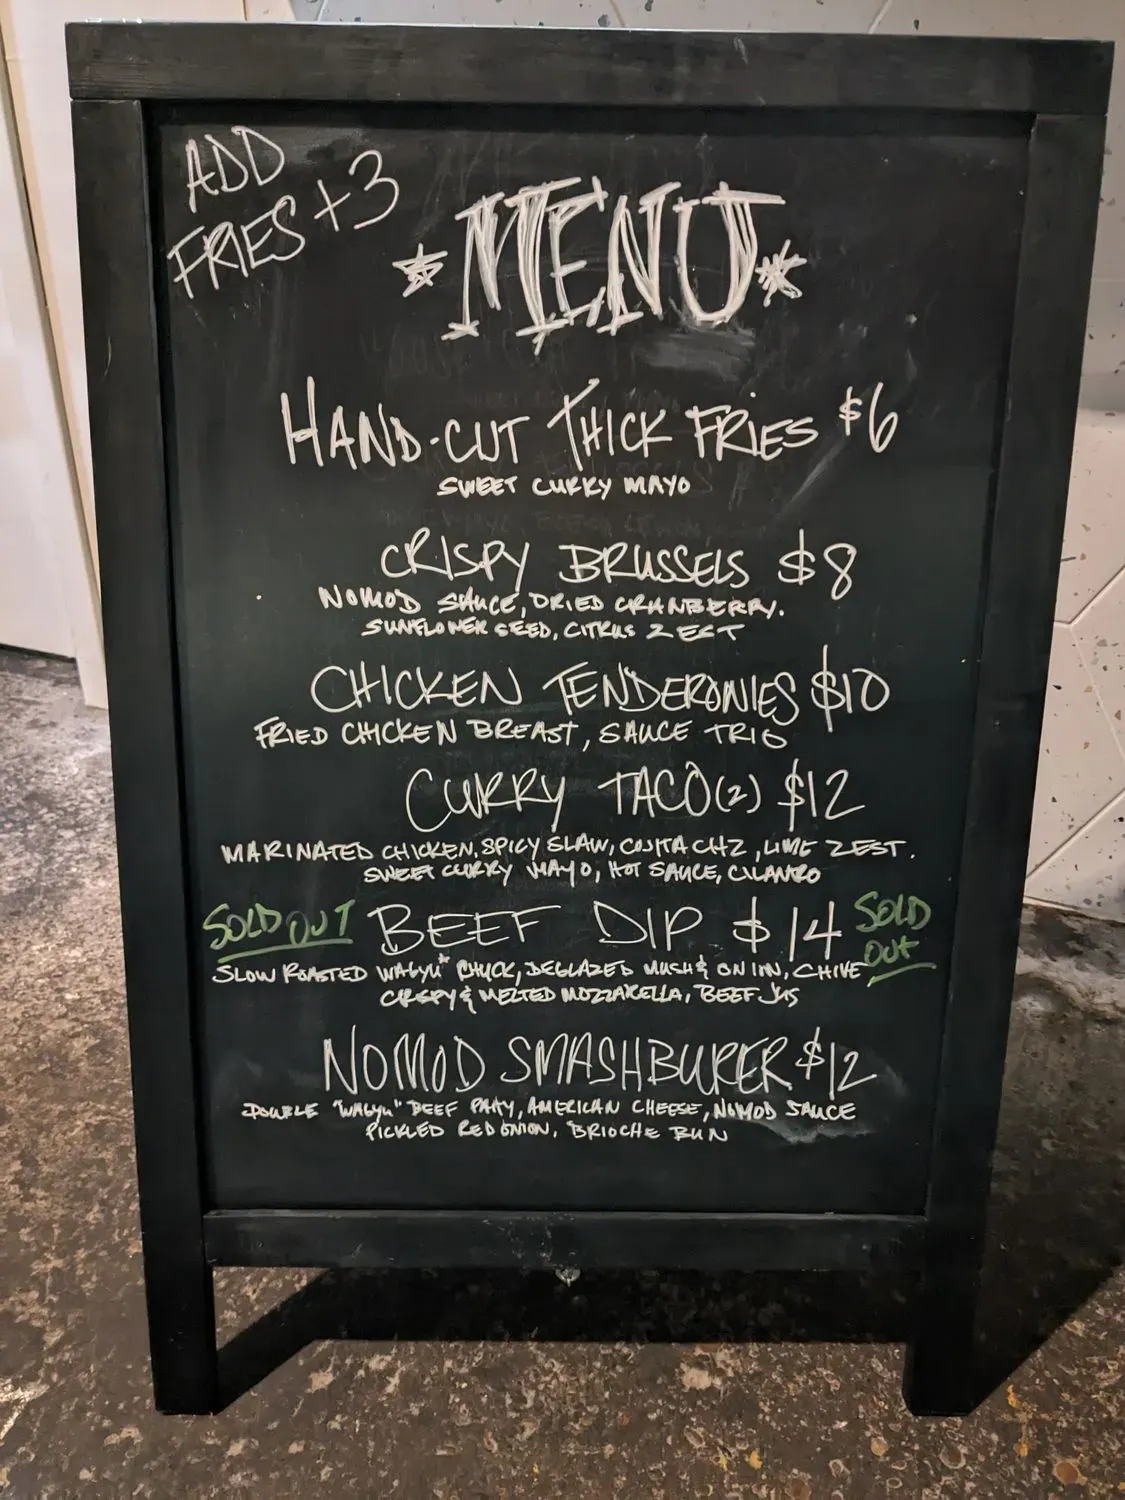 ADD
FRIES +3
MENU
HAND-CUT THICK FRIES $6
SWEET CURRY MAYO
CRISPY BRUSSELS $8
NOMOD SAUCE, DRIED CRANBERRY.
SUNFLOWER SEED, CITRUS ZEST
CHICKEN TENDERONIES $10
FRIED CHICKEN BREAST, SAUCE TRIO
CURRY TACO(2) $12
MARINATED CHICKEN, SPICY SLAW, COJITA CHZ, LIME ZEST.
SWEET CURRY MAYO, HOT SAUCE, CILANTRO
SOLD OUT BEEF DIP $14 SOLD OUT
SLOW ROASTED WAGYU" CHUCK, DEGLAZED MUSH & ONION, CHIVE
CRISPY & MELTED MOZZARELLA, BEEF JUS
NOMOD SMASHBURGER $12
DOUBLE "WAGYU" BEEF PATTY, AMERICAN CHEESE, NOMOD SAUCE
PICKLED RED ONION, BRIOCHE BUN